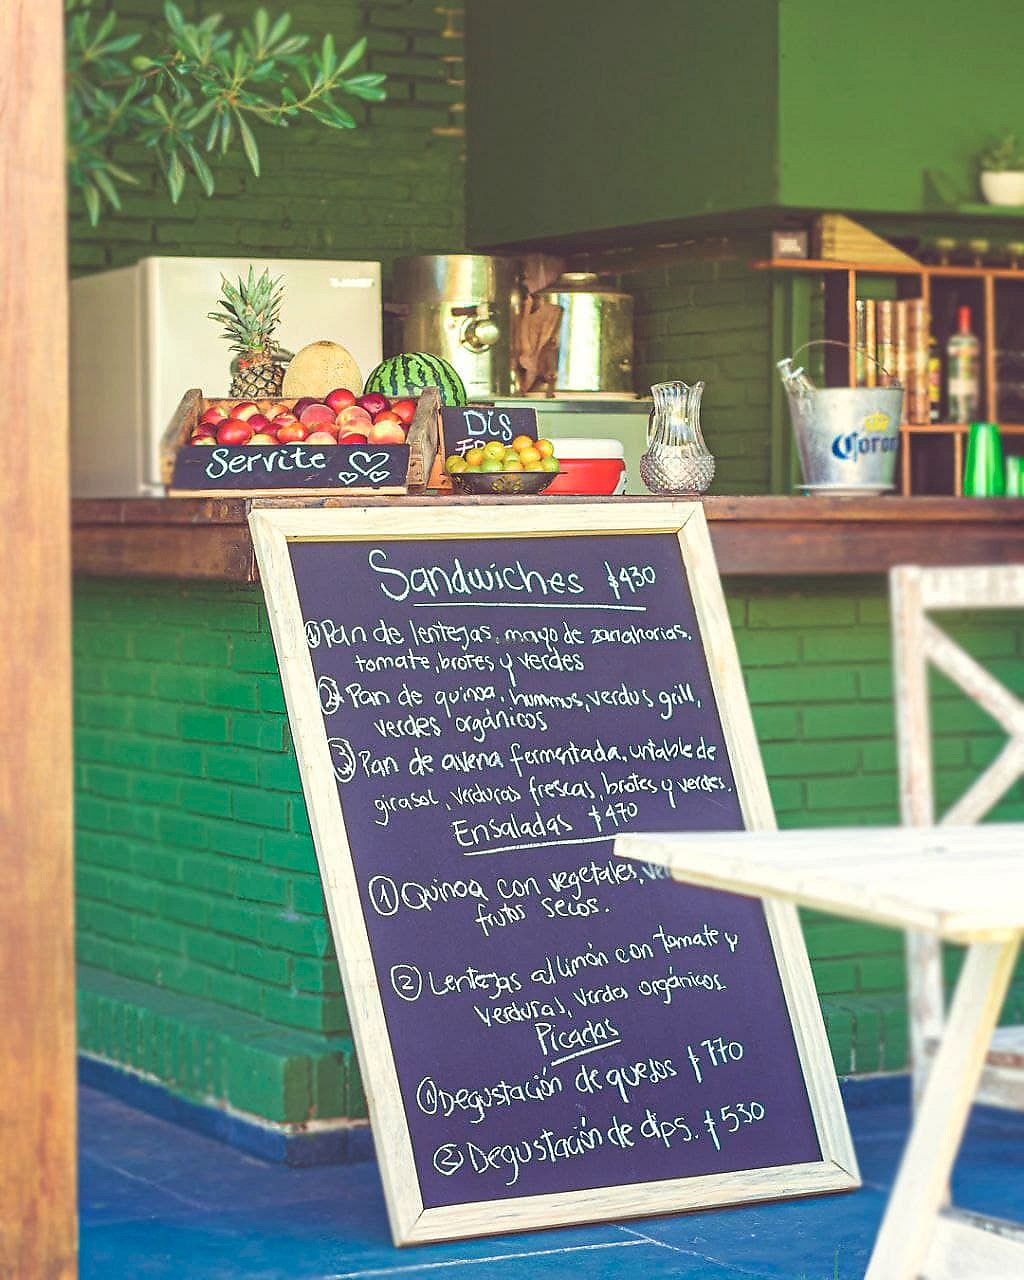 Servite
Dis
Corona
Sandwiches $430
① Pan de lentejas, mayo de zanahorias,
tomate, brotes y verdes
② Pan de quinoa, hummus, verdus grill,
verdes orgánicos
③ Pan de avena fermentada, untable de
girasol, verduras frescas, brotes y verdes.
Ensaladas $470
① Quinoa con vegetales,
frutos secos.
② Lentejas al limón con tomate y
verduras, verdes orgánicos
Picadas
① Degustación de quesos $770
② Degustación de dips. $530